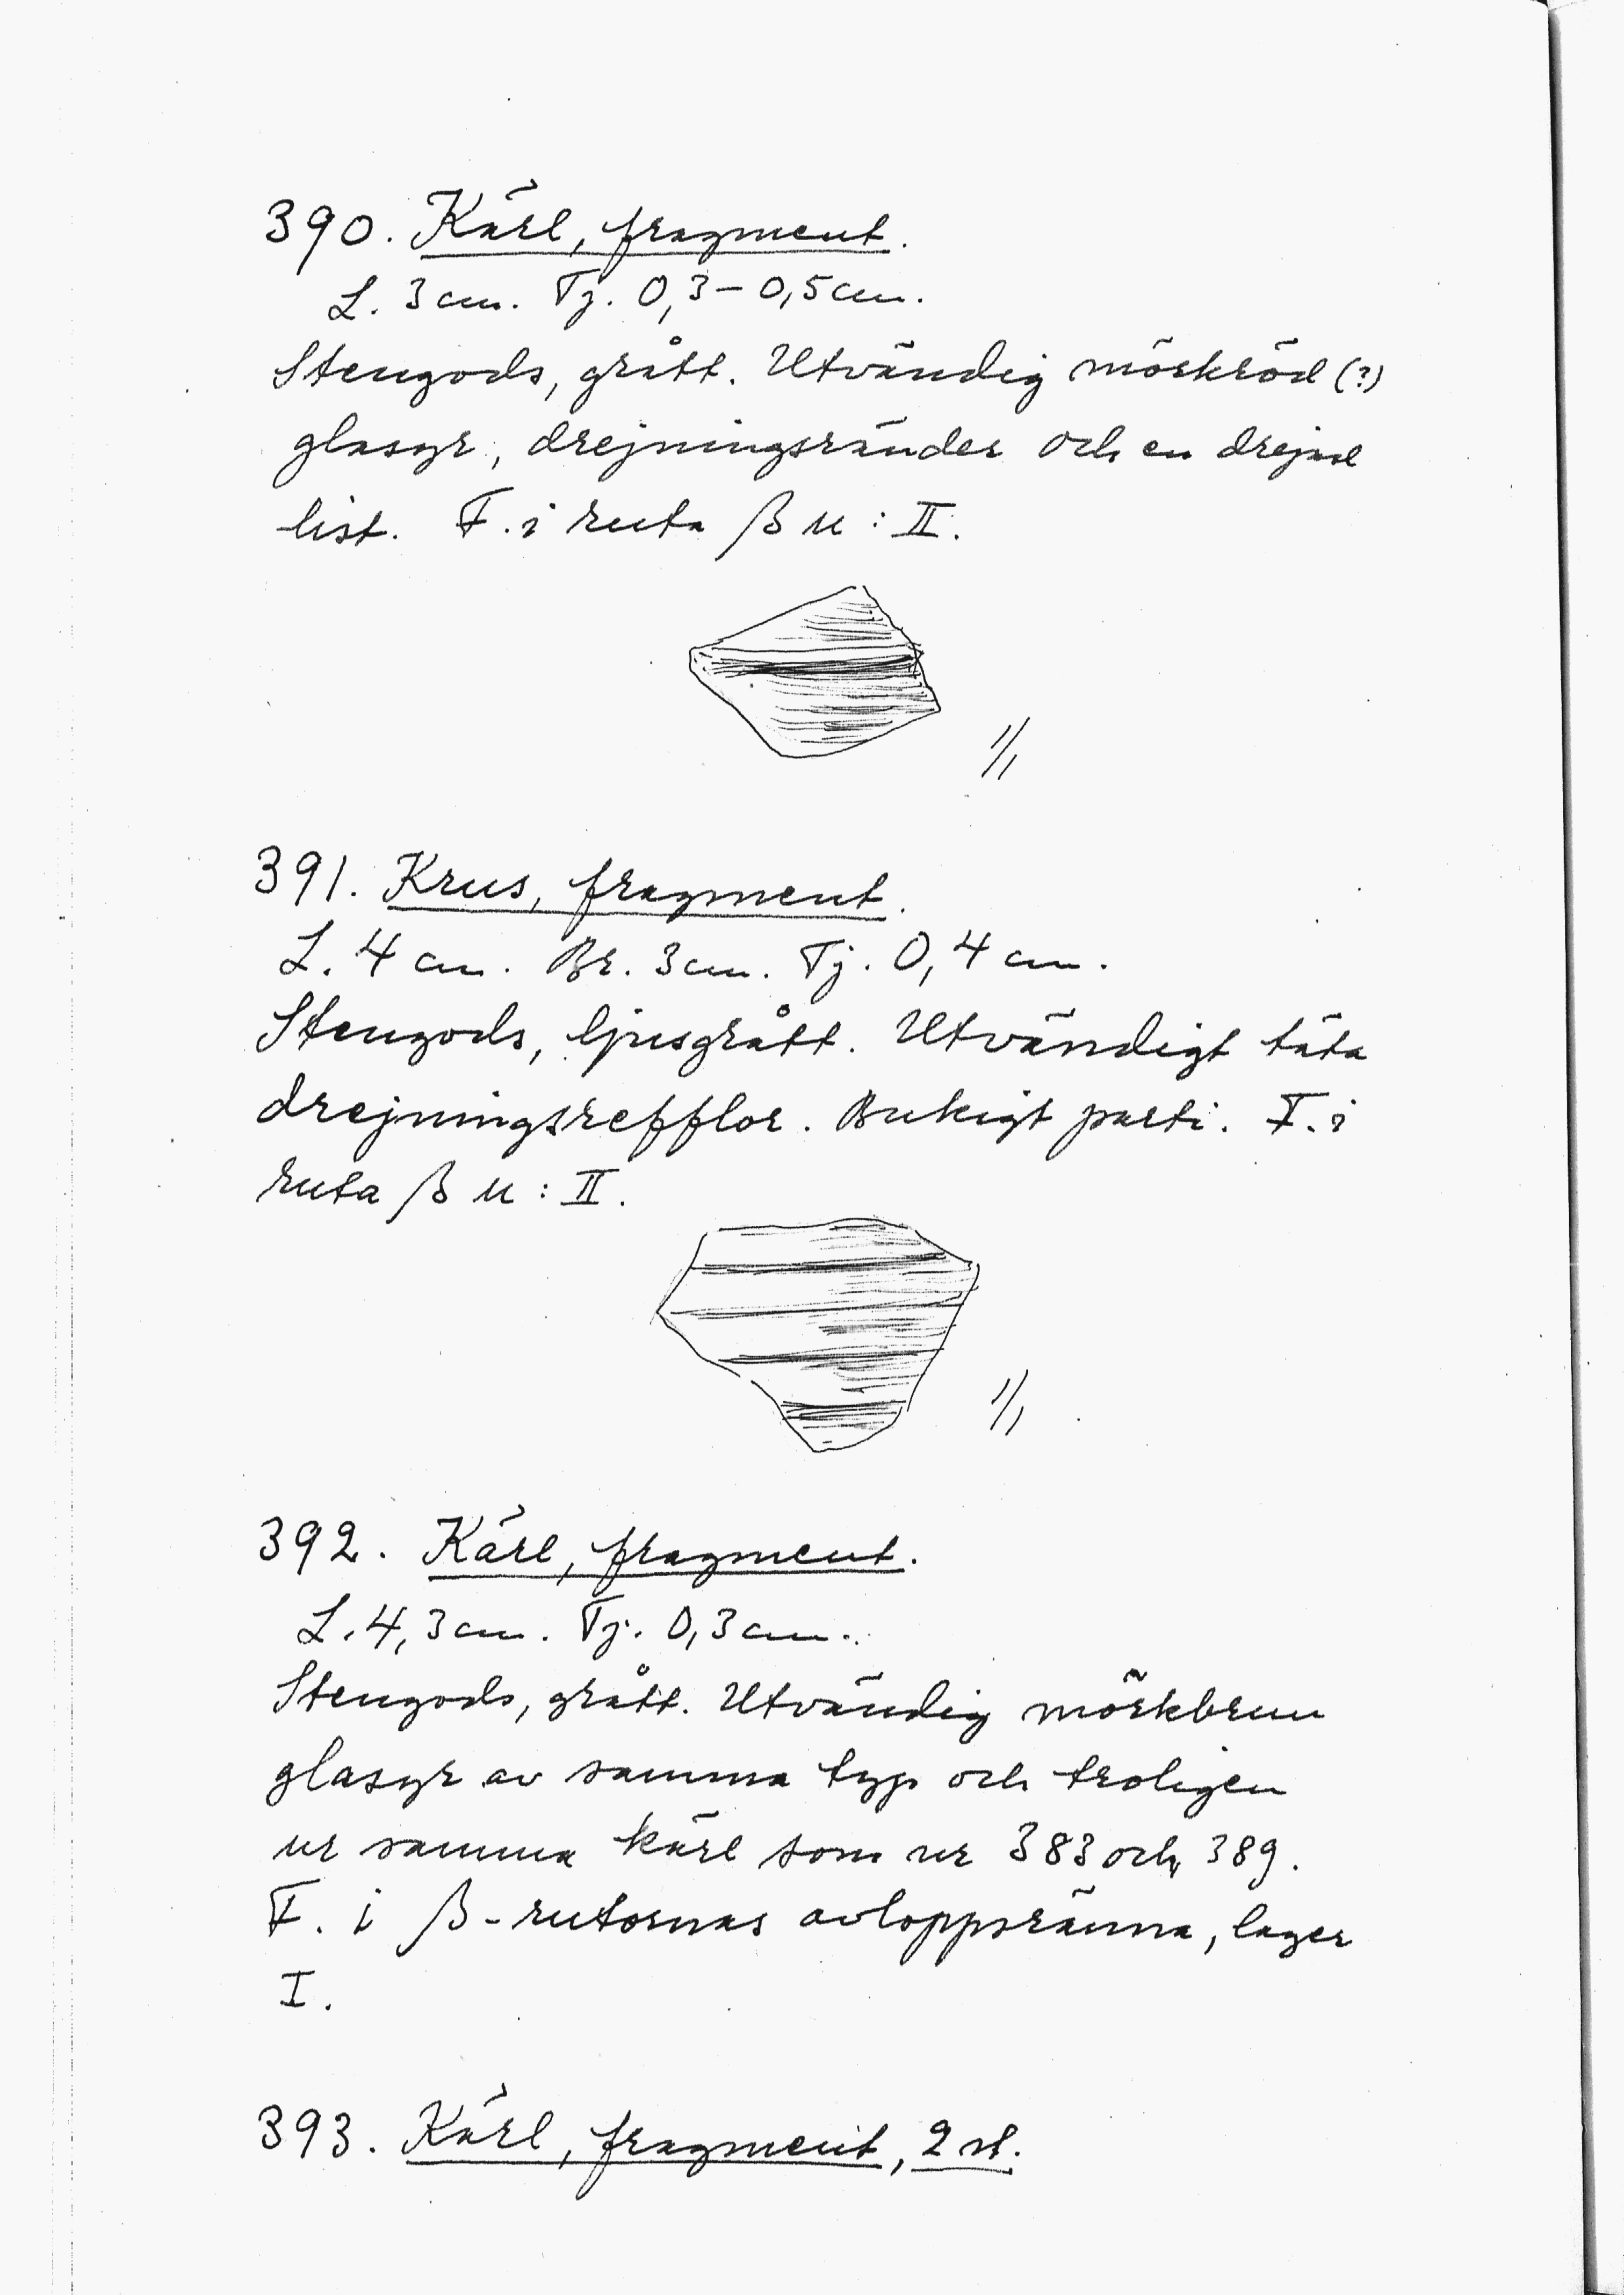 390. Kärl, fragment.
L. 3 cm. Tj. 0,3–0,5 cm.
Stengods, grått. Utvändig mörkröd (?)
glasyr, drejningsränder och en drejad
list. F. i ruta β u : II.
1/1
391. Krus, fragment.
L. 4 cm. Br. 3 cm. Tj. 0,4 cm.
Stengods, ljusgrått. Utvändigt täta
drejningsrefflor. Bukigt parti. F. i
ruta β u : II.
1/1
392. Kärl, fragment.
L. 4,3 cm. Tj. 0,3 cm.
Stengods, grått. Utvändig mörkbrun
glasyr av samma typ och troligen
ur samma kärl som nr 383 och 389.
F. i β-rutornas avloppsränna, lager
I.
393. Kärl, fragment, 2 st.